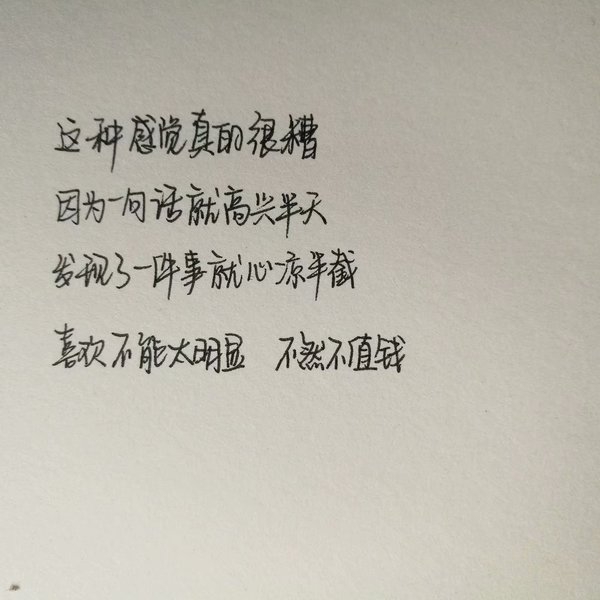 这种感觉真的很糟
因为一句话就高兴半天
发现了一件事就心凉半截
喜欢不能太明显 不然不值钱